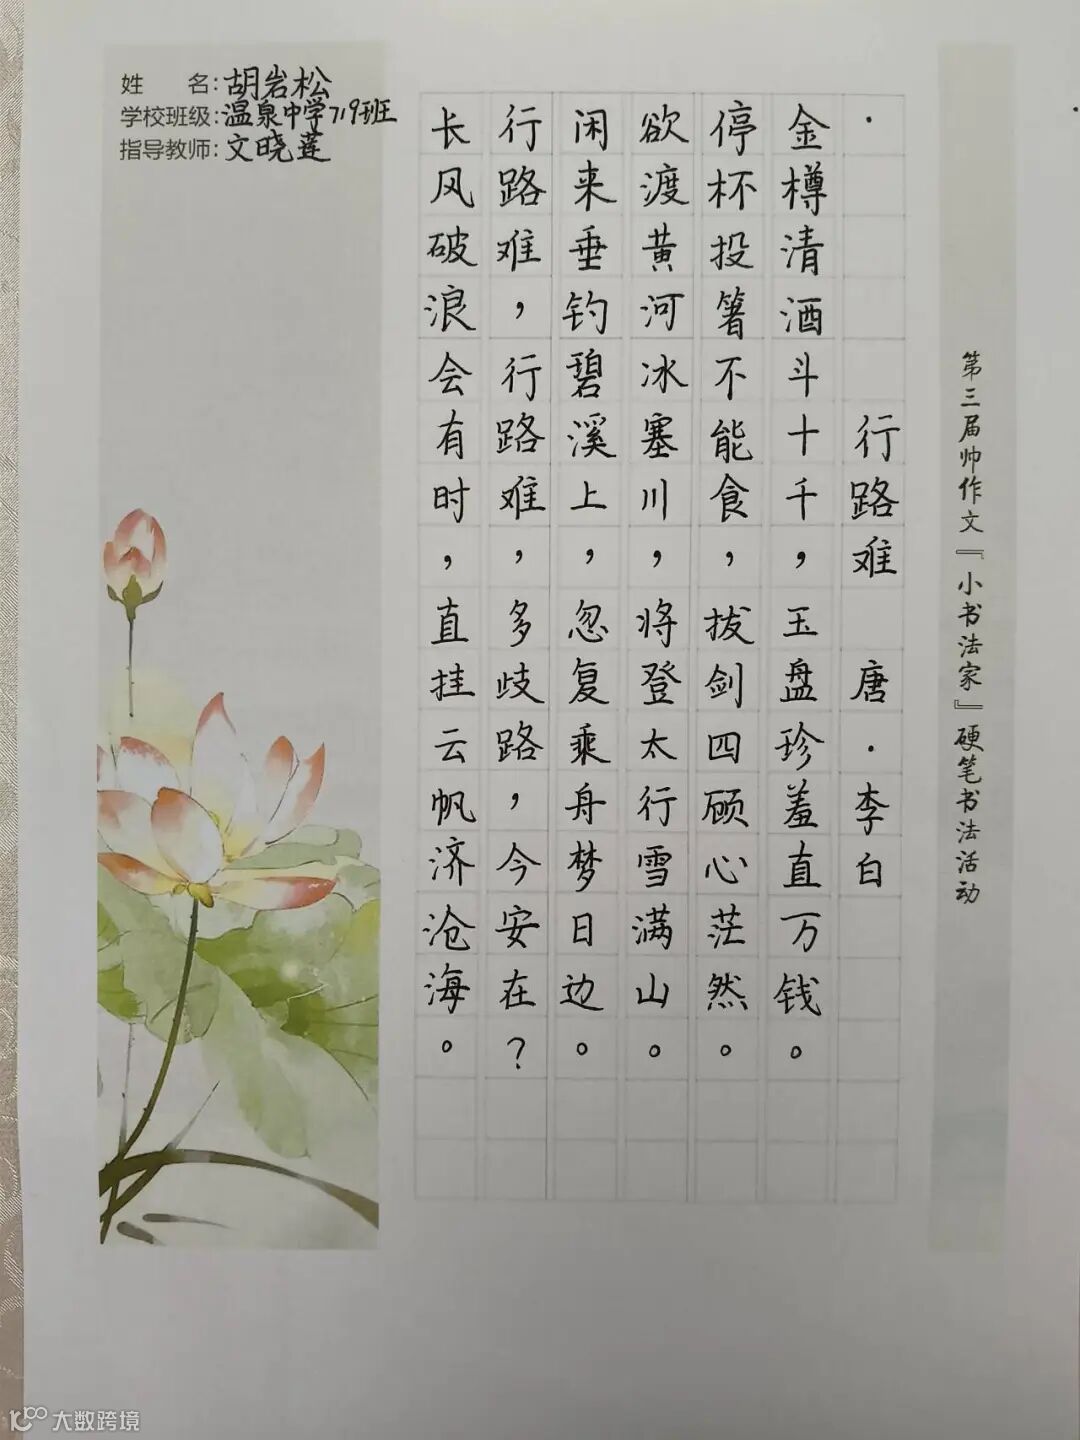 姓 名:胡岩松
学校班级:温泉中学719班
指导教师:文晓莲
第三届帅作文『小书法家』硬笔书法活动
行路难 唐·李白
金樽清酒斗十千，玉盘珍羞直万钱。
停杯投箸不能食，拔剑四顾心茫然。
欲渡黄河冰塞川，将登太行雪满山。
闲来垂钓碧溪上，忽复乘舟梦日边。
行路难，行路难，多歧路，今安在？
长风破浪会有时，直挂云帆济沧海。
大数跨境